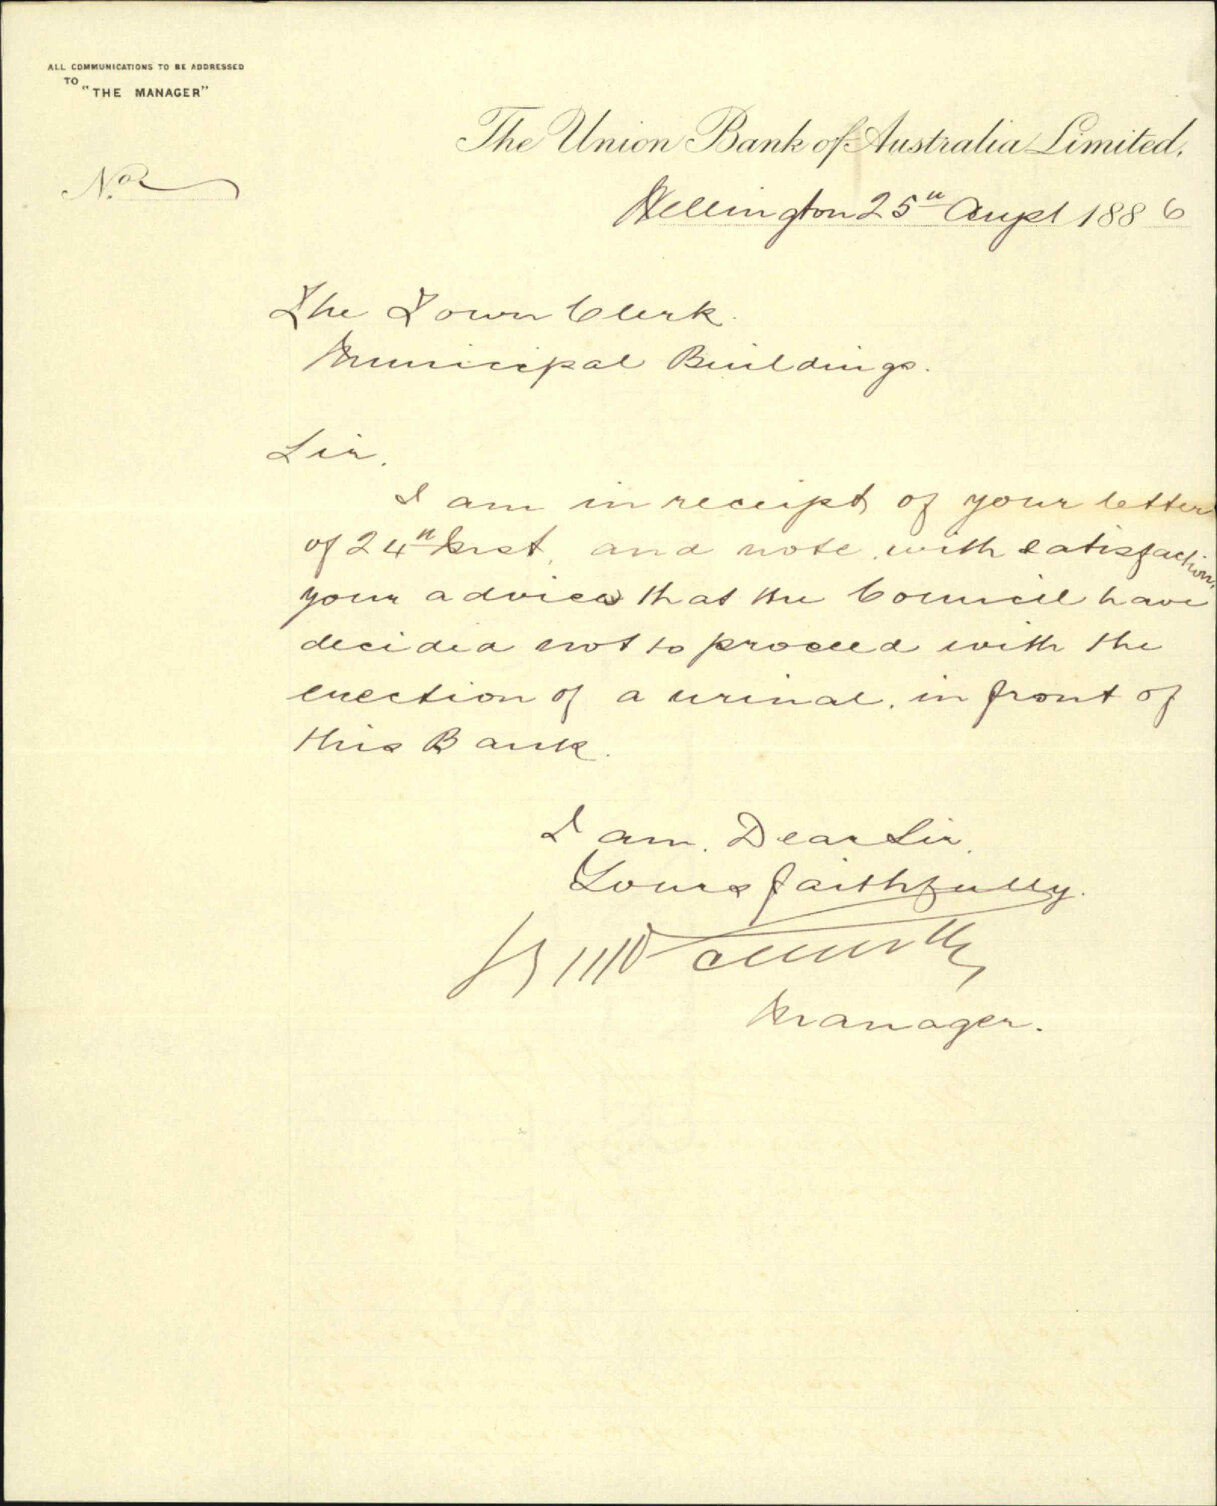 ALL COMMUNICATIONS TO BE ADDRESSED
TO "THE MANAGER"
The Union Bank of Australia Limited.
No.
Wellington 25th Augst 1886
The Town Clerk.
Municipal Buildings.
Sir,
I am in receipt of your letter
of 24th Inst, and note with satisfaction,
your advice that the Council have
decided not to proceed with the
erection of a urinal, in front of
this Bank.
I am. Dear Sir,
Yours faithfully.
Manager.